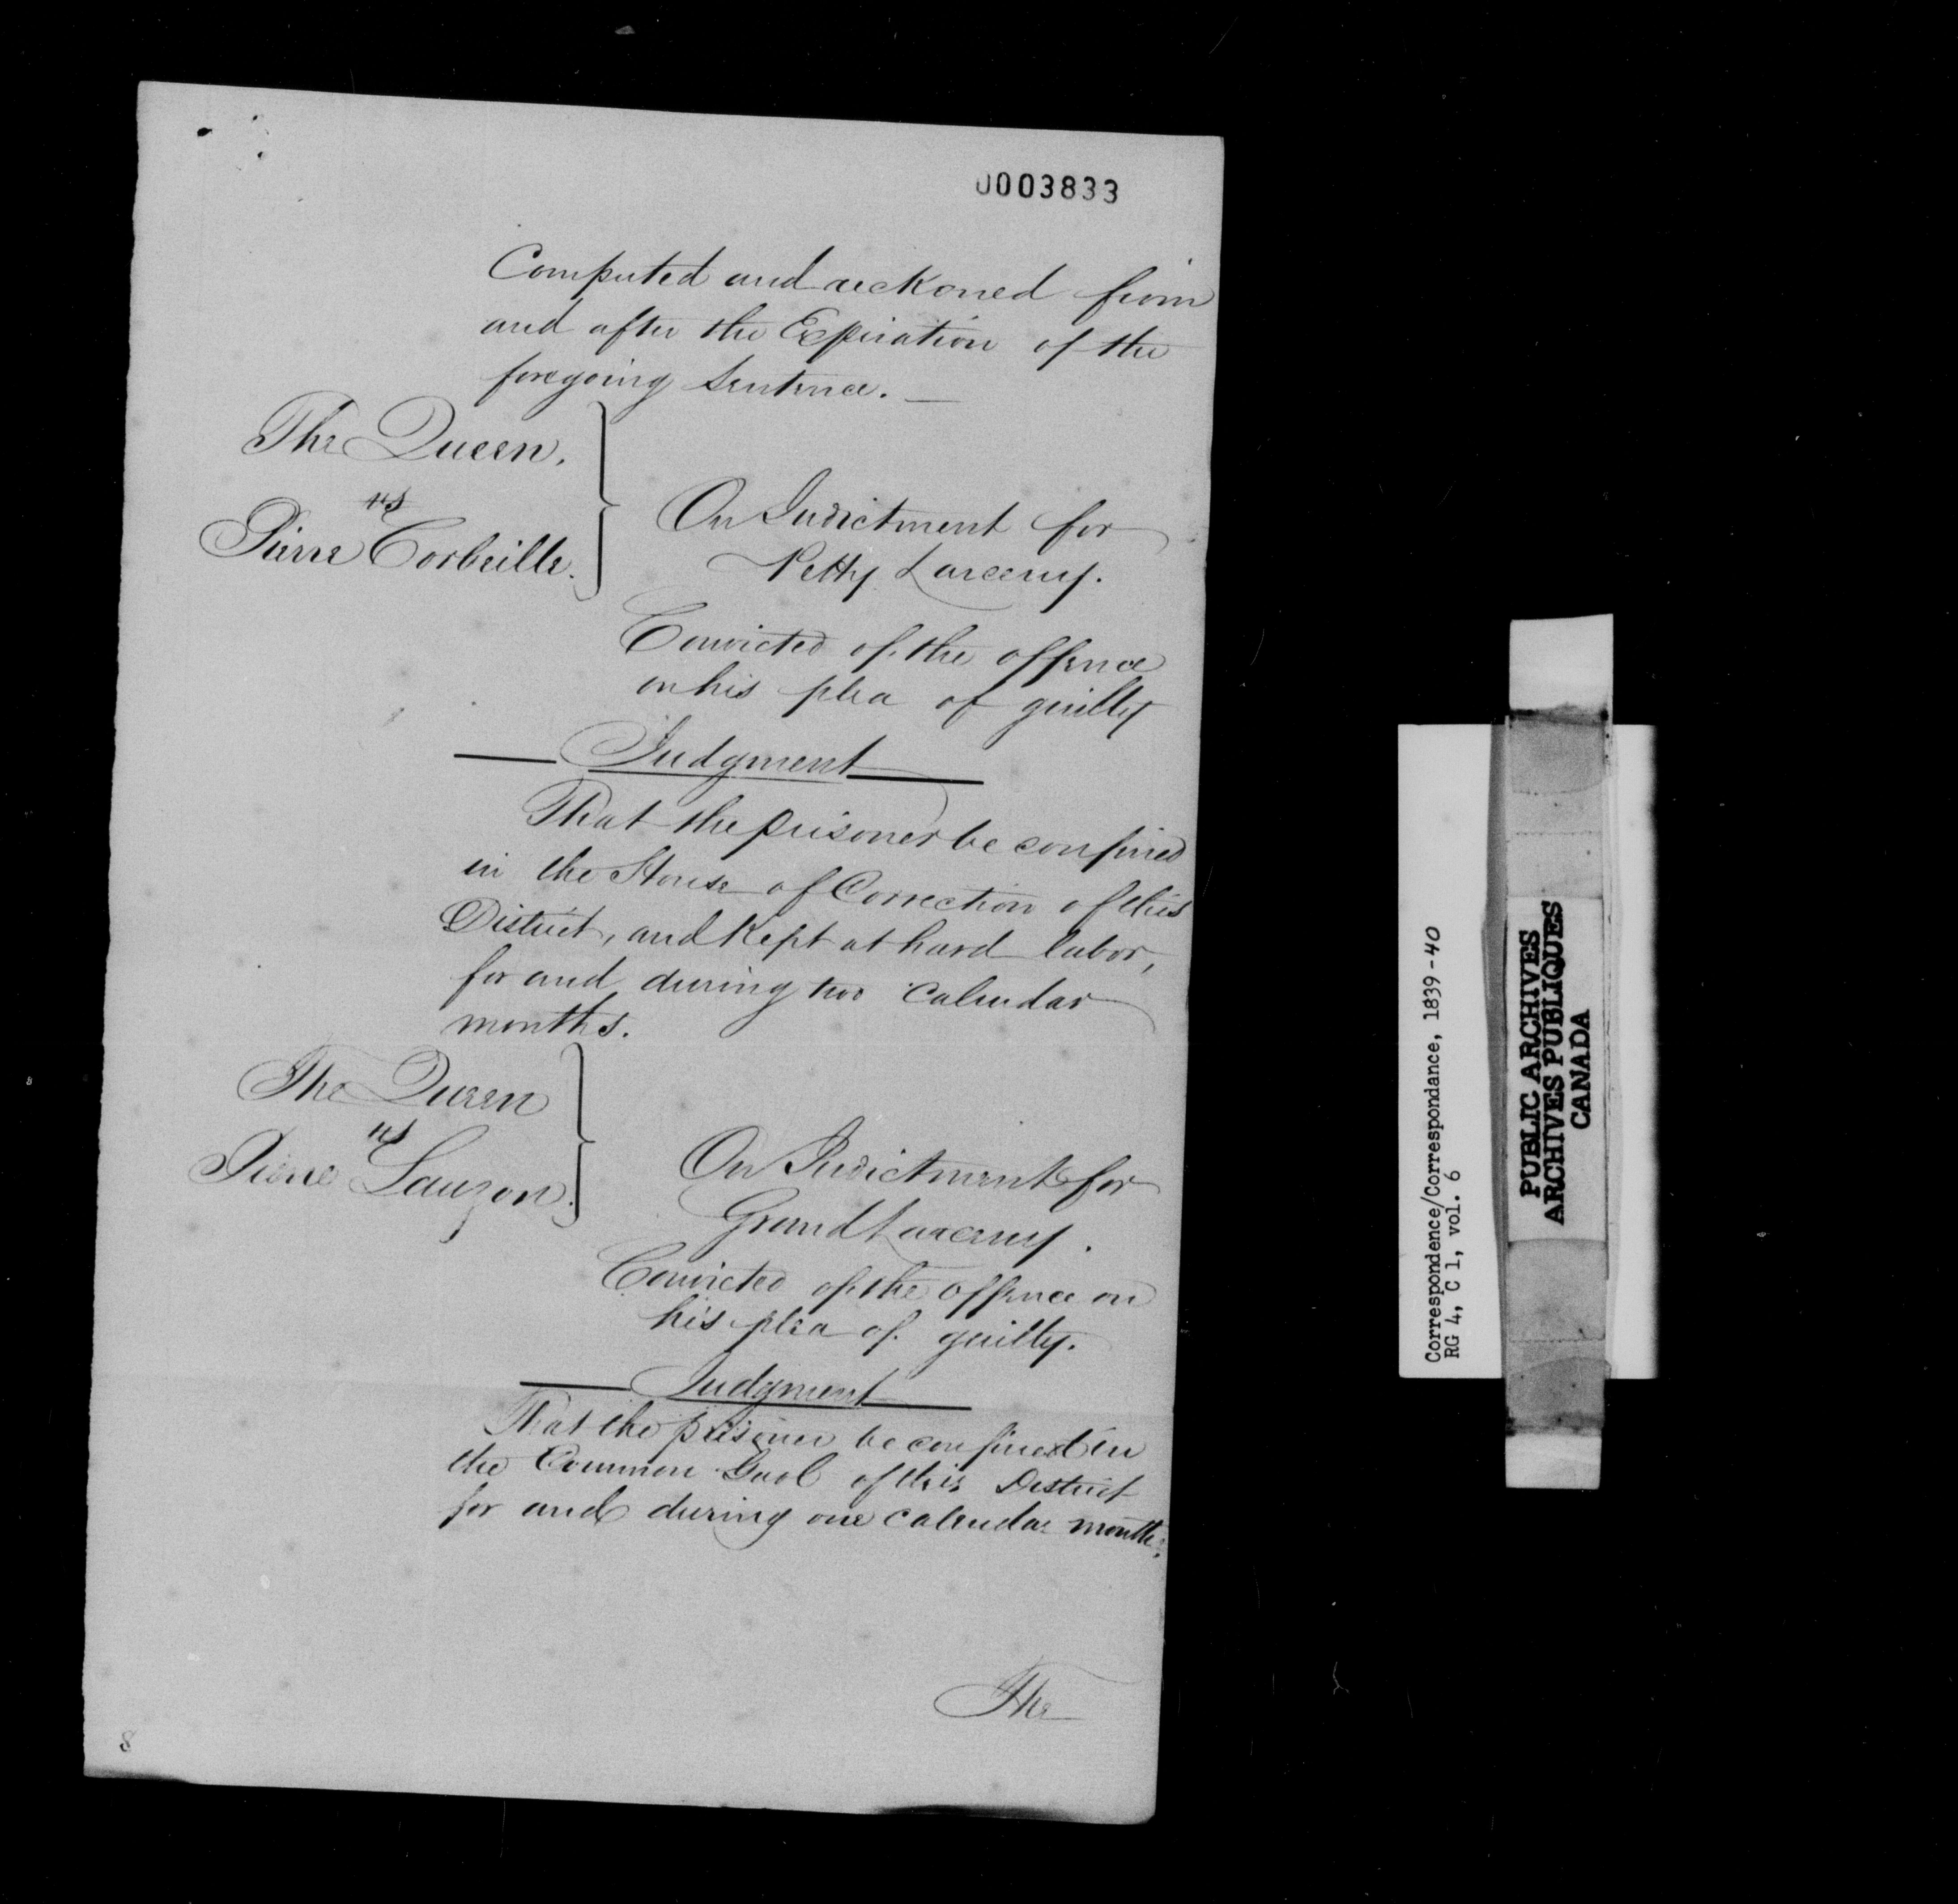 0003833
Computed and reckoned from
and after the Expiration of the
foregoing Sentence. —
The Queen,
vs
Pierre Corbeille.
On Indictment for
Petty Larceny.
Convicted of the offence
on his plea of guilty
Judgment
That the prisoner be confined
in the House of Correction of this
District, and kept at hard labor,
for and during two calendar
months.
The Queen
vs
Pierre Lauzon.
On Indictment for
Grand Larceny.
Convicted of the offence on
his plea of guilty.
Judgment
That the prisoner be confined in
the Common Gaol of this District
for and during one calendar month.
The
8
Correspondence/Correspondance, 1839-40
RG 4, C 1, vol. 6
PUBLIC ARCHIVES
ARCHIVES PUBLIQUES
CANADA